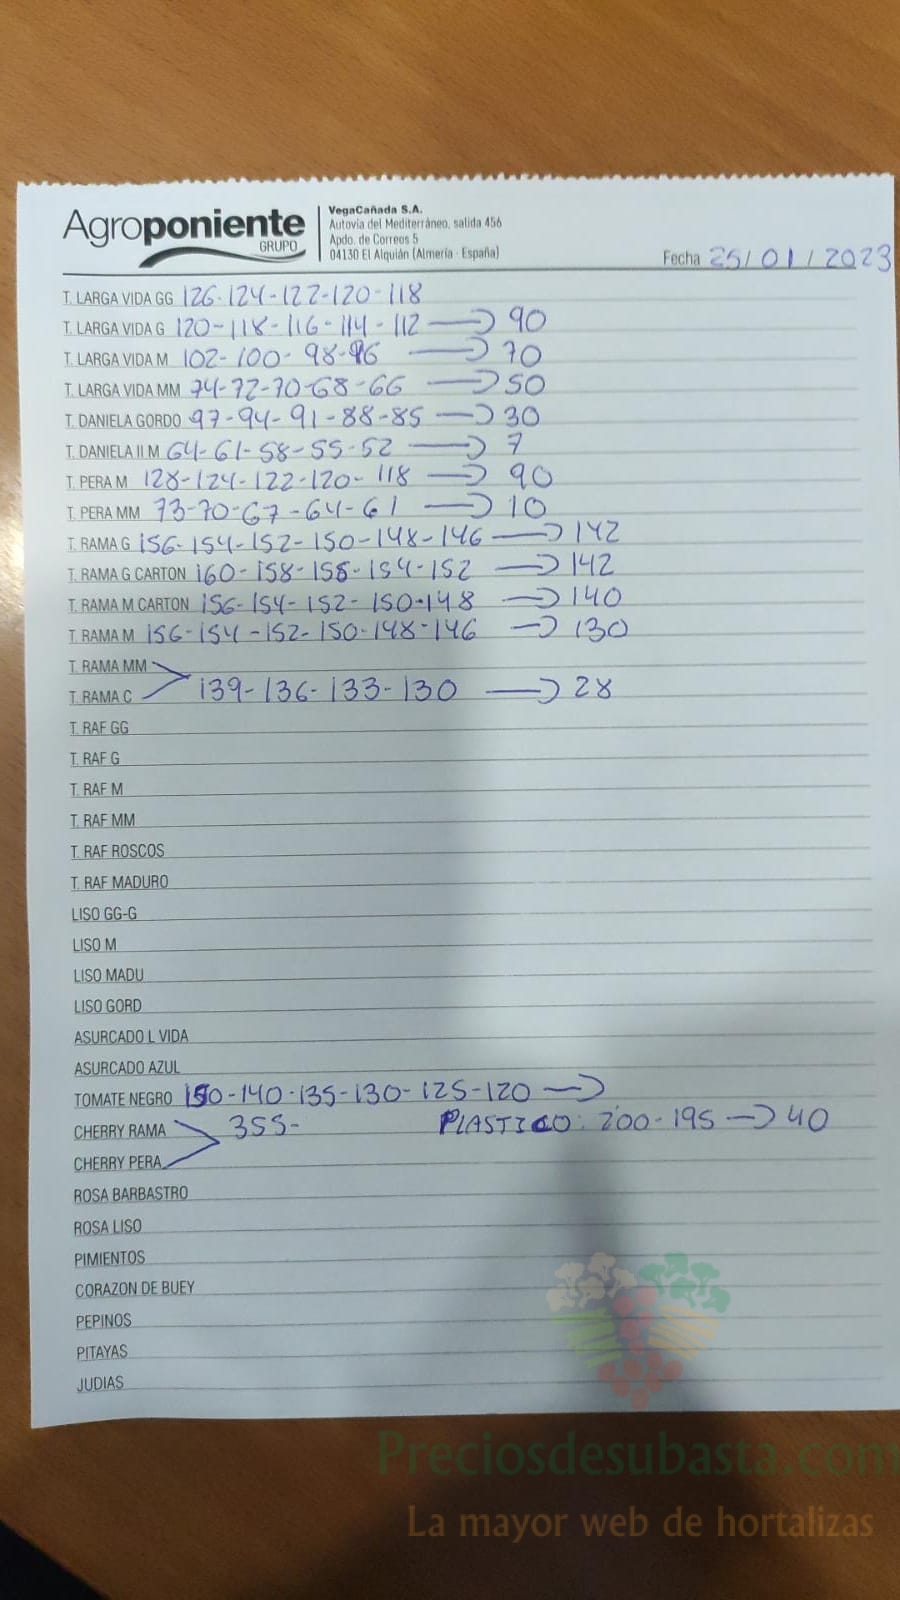 Agroponiente
GRUPO
VegaCañada S.A.
Autovía del Mediterráneo, salida 456
Apdo. de Correos 5
04130 El Alquián (Almería - España)
Fecha 25/01/2023
T. LARGA VIDA GG 126-124-122-120-118
T. LARGA VIDA G 120-118-116-114-112 → 90
T. LARGA VIDA M 102-100-98-96 → 70
T. LARGA VIDA MM 74-72-70-68-66 → 50
T. DANIELA GORDO 97-94-91-88-85 → 30
T. DANIELA II M 64-61-58-55-52 → 7
T. PERA M 128-124-122-120-118 → 90
T. PERA MM 73-70-67-64-61 → 10
T. RAMA G 156-154-152-150-148-146 → 142
T. RAMA G CARTON 160-158-158-154-152 → 142
T. RAMA M CARTON 156-154-152-150-148 → 140
T. RAMA M 156-154-152-150-148-146 → 130
T. RAMA MM
T. RAMA C 139-136-133-130 → 28
T. RAF GG
T. RAF G
T. RAF M
T. RAF MM
T. RAF ROSCOS
T. RAF MADURO
LISO GG-G
LISO M
LISO MADU
LISO GORD
ASURCADO L VIDA
ASURCADO AZUL
TOMATE NEGRO 150-140-135-130-125-120 →
CHERRY RAMA 355- PLASTICO: 200-195 → 40
CHERRY PERA
ROSA BARBASTRO
ROSA LISO
PIMIENTOS
CORAZON DE BUEY
PEPINOS
PITAYAS
JUDIAS
Preciosdesubasta.com
La mayor web de hortalizas